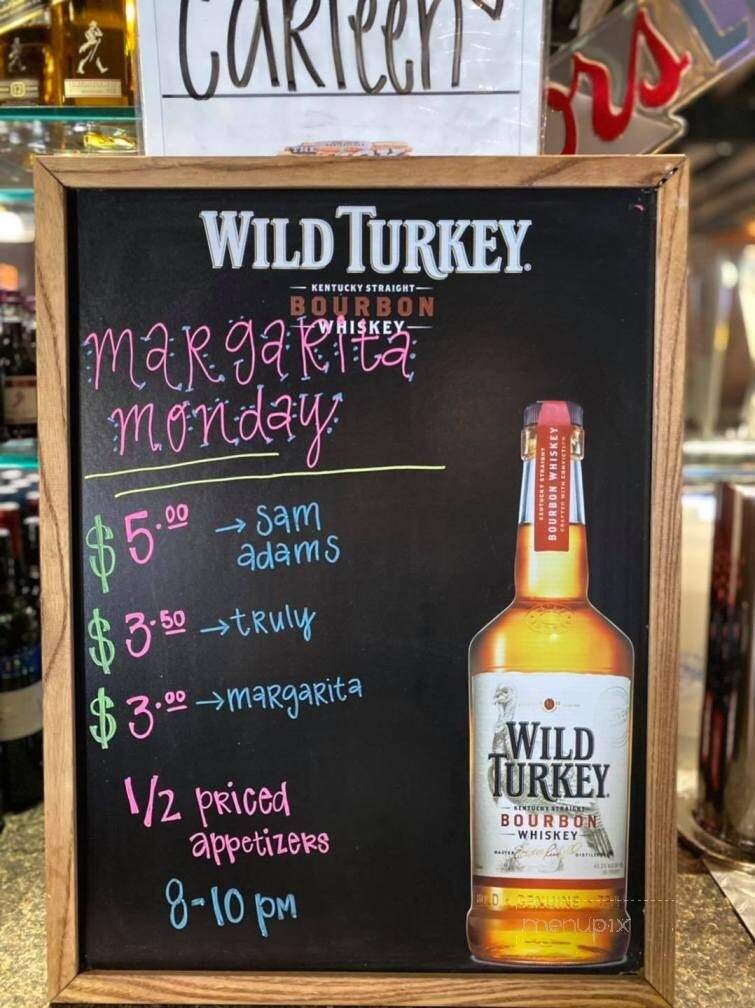 Carleen
WILD TURKEY
KENTUCKY STRAIGHT
BOURBON
WHISKEY
margarita
monday
$5.00 → sam
adams
$3.50 → truly
$3.00 → margarita
1/2 priced
appetizers
8-10 pm
KENTUCKY STRAIGHT
BOURBON WHISKEY
CRAFTED WITH CONVICTION
WILD
TURKEY
KENTUCKY STRAIGHT
BOURBON
WHISKEY
MASTER DISTILLER
GENUINE
menupix